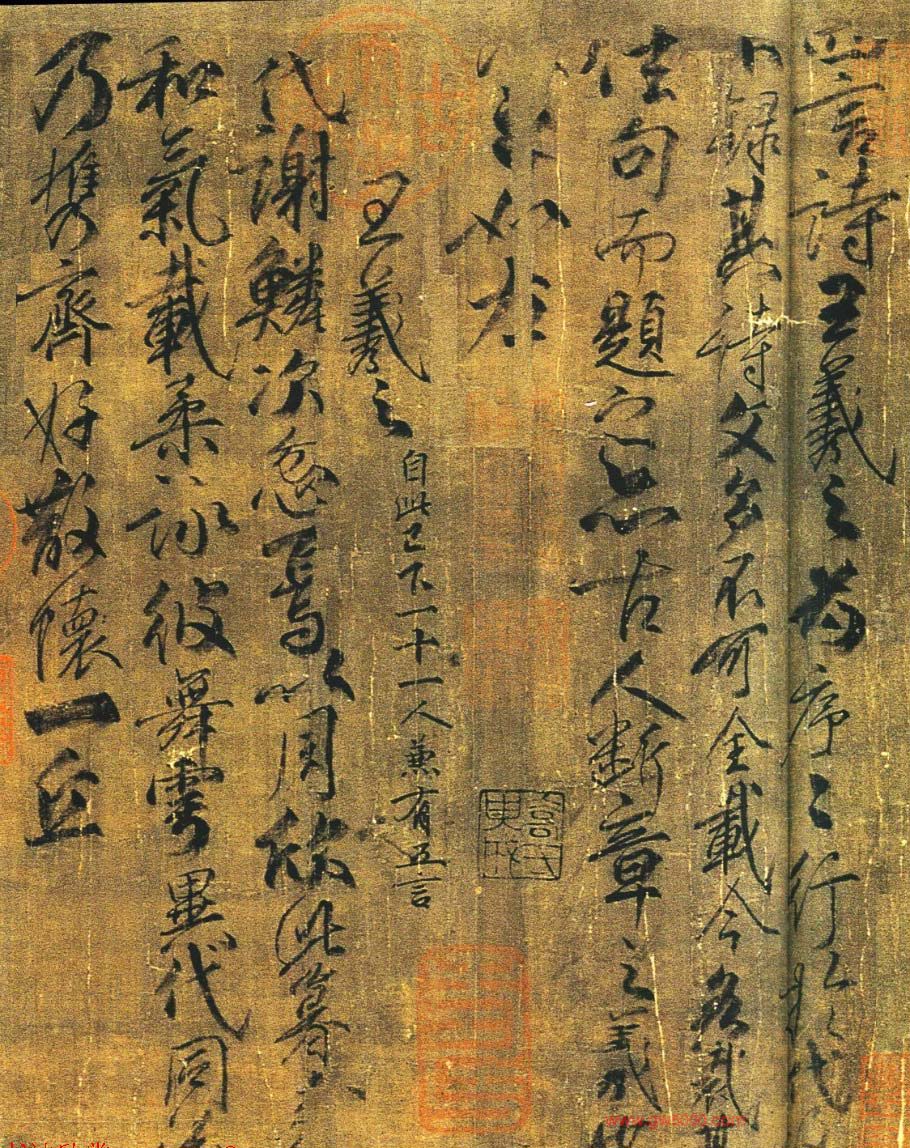 四言詩王羲之為序〻行於代
不錄其詩文多不可全載今各裁其
佳句而題之亦古人斷章之義也
如左
王羲之 自此已下一十一人兼有五言
代謝鱗次忽焉以周欣此暮春
和氣載柔詠彼舞雩異代同
乃攜齊好散懷一丘